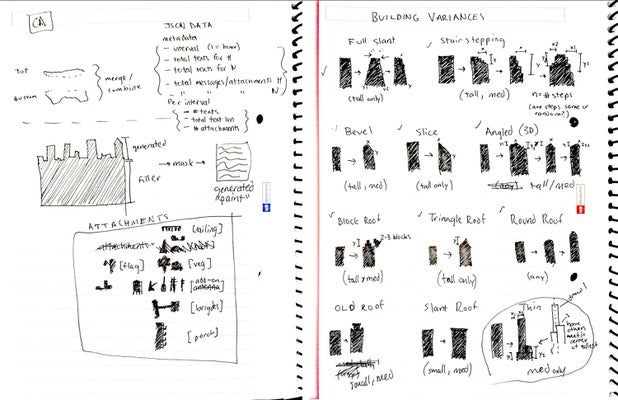 CA
JSON DATA
metadata
- interval (1 = hour)
- total texts for H
- total texts for N
- total messages/attachments H
" " " N
Per interval
→ # texts
- total text len
- # attachments
TOP
BOTTOM
merge/
combine
generated
filler
→ mask →
generated
"paint"
ATTACHMENTS
[railing]
attachments
[flag]
[veg]
[add-on
antenna]
[bridges]
[porch]
BUILDING VARIANCES
Full Slant
(tall only)
Stair stepping
(tall, med)
n = # steps
(are steps same or
random?)
Bevel
(tall, med)
Slice
(tall only)
Angled (3D)
tall/med
Block Roof
2-3 blocks
(tall, med)
Triangle Roof
(tall only)
Round Roof
(any)
OLD ROOF
small, med
Slant Roof
(small, med)
Thin
med only